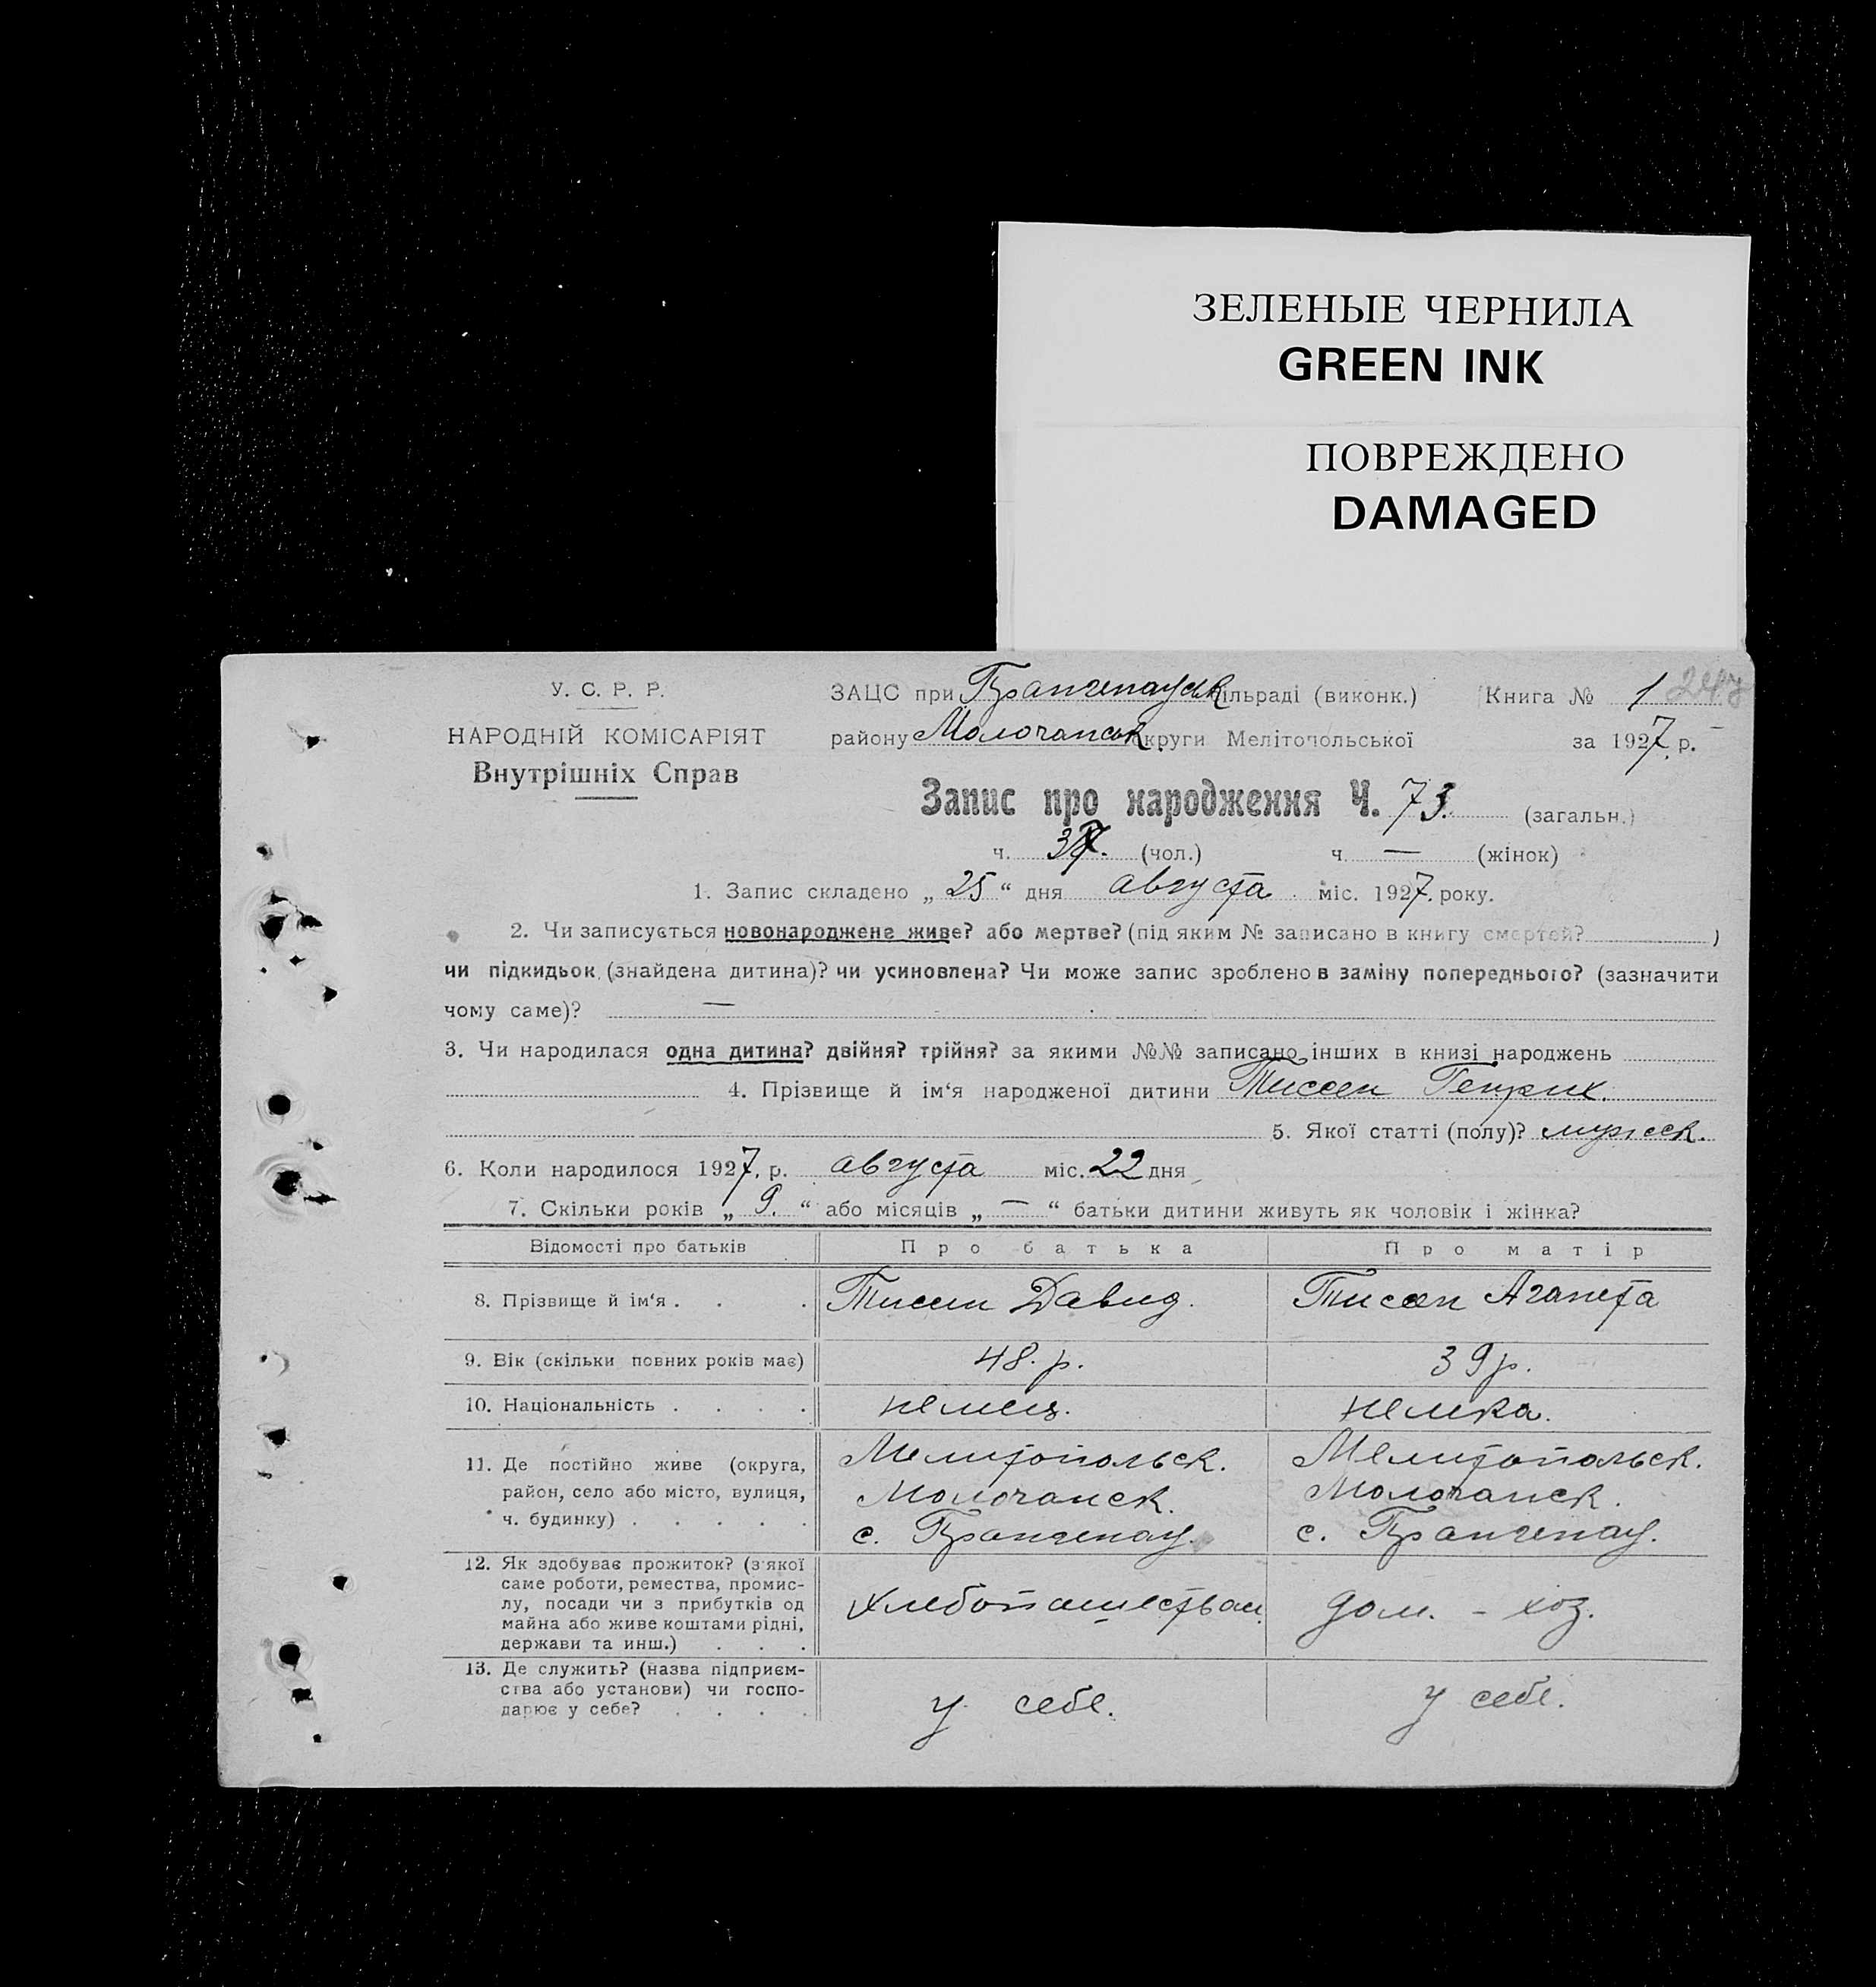 ЗЕЛЕНЫЕ ЧЕРНИЛА
GREEN INK
ПОВРЕЖДЕНО
DAMAGED
У. С. Р. Р.
НАРОДНІЙ КОМІСАРІЯТ
Внутрішніх Справ
ЗАЦС при Гранженауск сільраді (виконк.) Книга № 1
району Молочанск округи Мелітопольської за 1927 р.
Запис про народження Ч. 73. (загальн.)
ч. (чол.) ч. — (жінок)
1. Запис складено „ 25 “ дня августа міс. 1927. року.
2. Чи записується новонароджене живе? або мертве? (під яким № записано в книгу смертей? )
чи підкидьок (знайдена дитина)? чи усиновлена? Чи може запис зроблено в заміну попереднього? (зазначити
чому саме)? —
3. Чи народилася одна дитина? двійня? трійня? за якими №№ записано інших в книзі народжень
4. Прізвище й ім‘я народженої дитини Тиссен Генрих.
5. Якої статті (полу)? мужск.
6. Коли народилося 1927. р. августа міс. 22 дня
7. Скільки років „ 9. “ або місяців „ — “ батьки дитини живуть як чоловік і жінка?
Відомості про батьків Про батька Про матір
8. Прізвище й ім‘я . . . Тиссен Давид. Тиссен Аганета
9. Вік (скільки повних років має) 48. р. 39 р.
10. Національність . . . . немец. немка.
11. Де постійно живе (округа, Мелитопольск. Мелитопольск.
район, село або місто, вулиця, Молочанск. Молочанск.
ч. будинку) . . . . . с. Гранженау. с. Гранженау.
12. Як здобуває прожиток? (з якої
саме роботи, ремества, промис-
лу, посади чи з прибутків од хлебопашеством. дом. - хоз.
майна або живе коштами рідні,
держави та инш.) . . .
13. Де служить? (назва підприєм-
ства або установи) чи госпо- у себе. у себе.
дарює у себе? . . . .